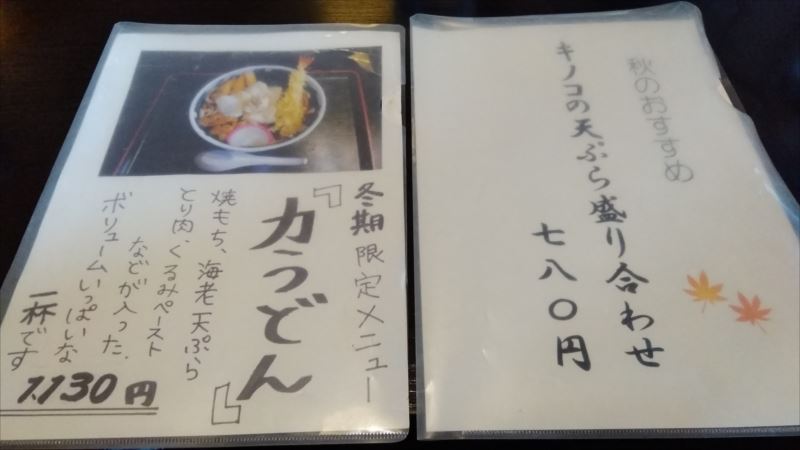 冬期限定メニュー
『力うどん』
焼もち、海老天ぷら
とり肉、くるみペースト
などが入った、
ボリュームいっぱいな
一杯です
1.130円
秋のおすすめ
キノコの天ぷら盛り合わせ
七八〇円